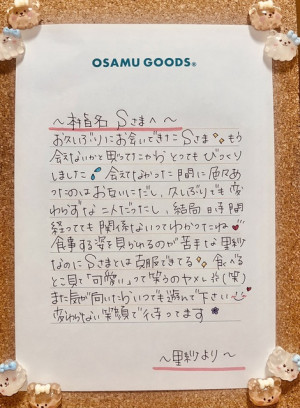 OSAMU GOODS®
～椎名 Sさまへ～
お久しぶりにお会いできたSさま✨もう
会えないかと思ってたからとってもびっくり
しました💦会えてなかった間に色々あ
ったのはお互いにだし、久しぶりでも変
わらずな二人だったし、結局時間
経ってても関係ないってわかったね❤
食事する姿を見られるのが苦手な里紗
なのにSさまとは克服できてる✨食べる
とこ見て「可愛い」って笑うのヤメレ(笑)
また気が向いたらいつでも遊んで下さい
変わらない笑顔で待ってます
～里紗より～